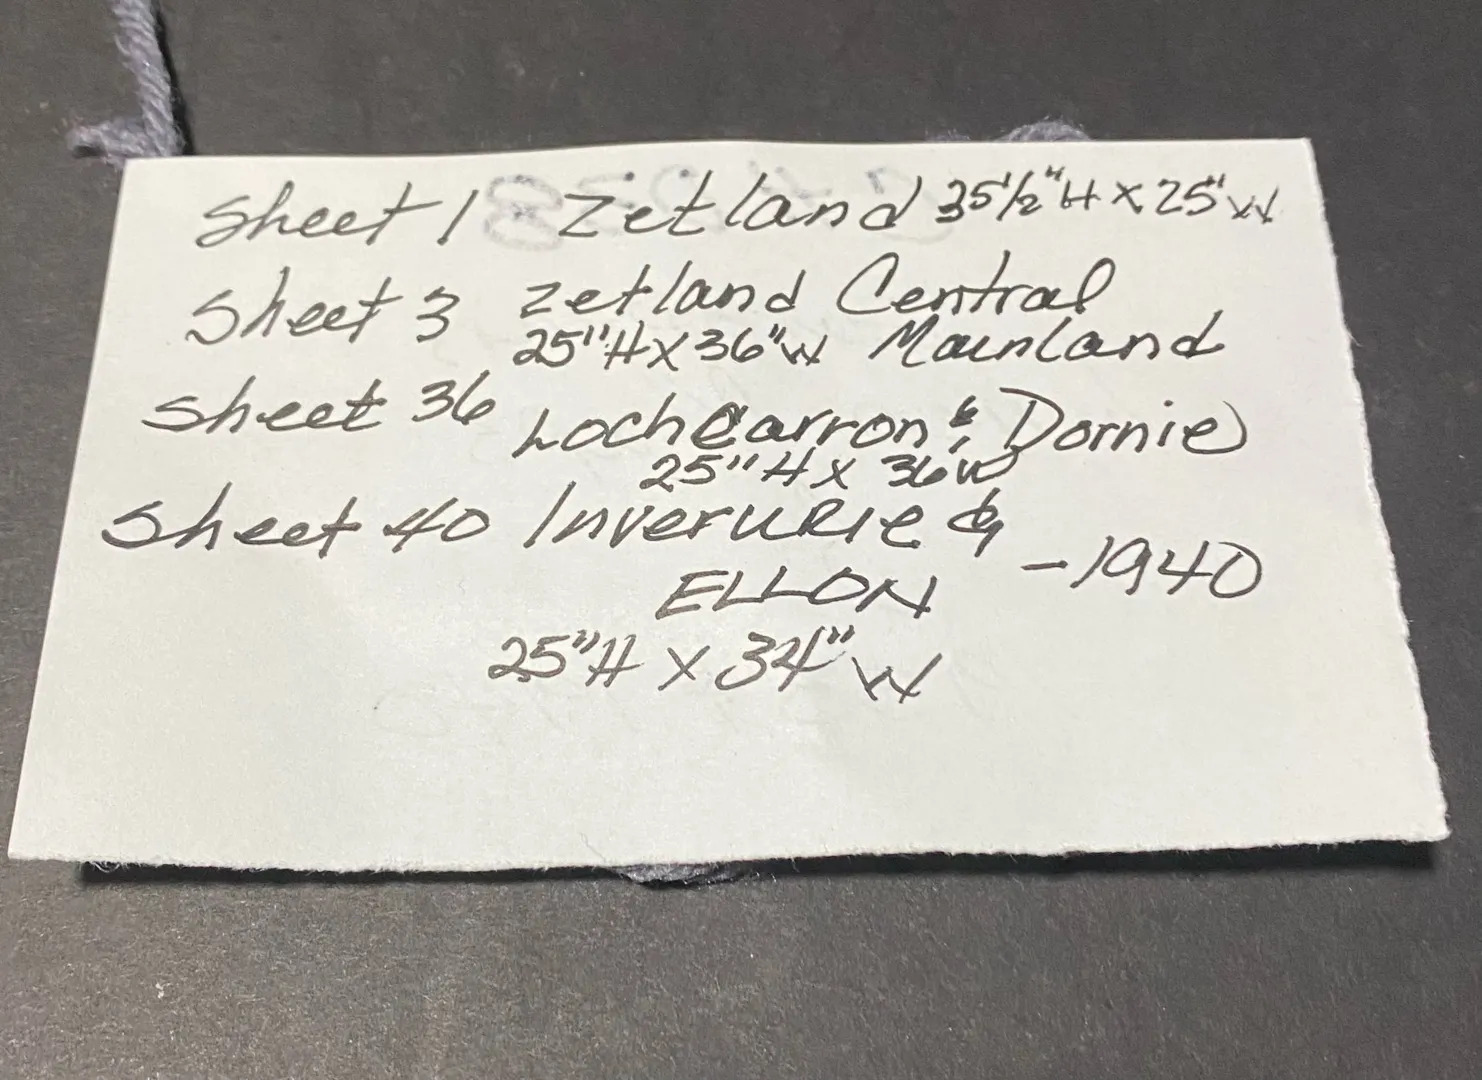 Sheet 1 Zetland 35 1/2" H X 25" W
Sheet 3 Zetland Central
25" H X 36" W Mainland
Sheet 36 Lochcarron & Dornie
25" H X 36 W
Sheet 40 Inverurie &
ELLON - 1940
25" H X 34" W